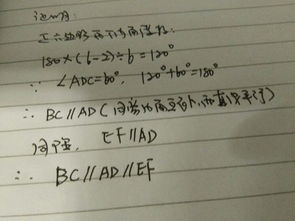 证明:
正六边形的每个内角等于
180×(6-2)÷6=120°
∵ ∠ADC=60°, 120°+60°=180°
∴ BC//AD(同旁内角互补,两直线平行)
同理, EF//AD
∴ BC//AD//EF